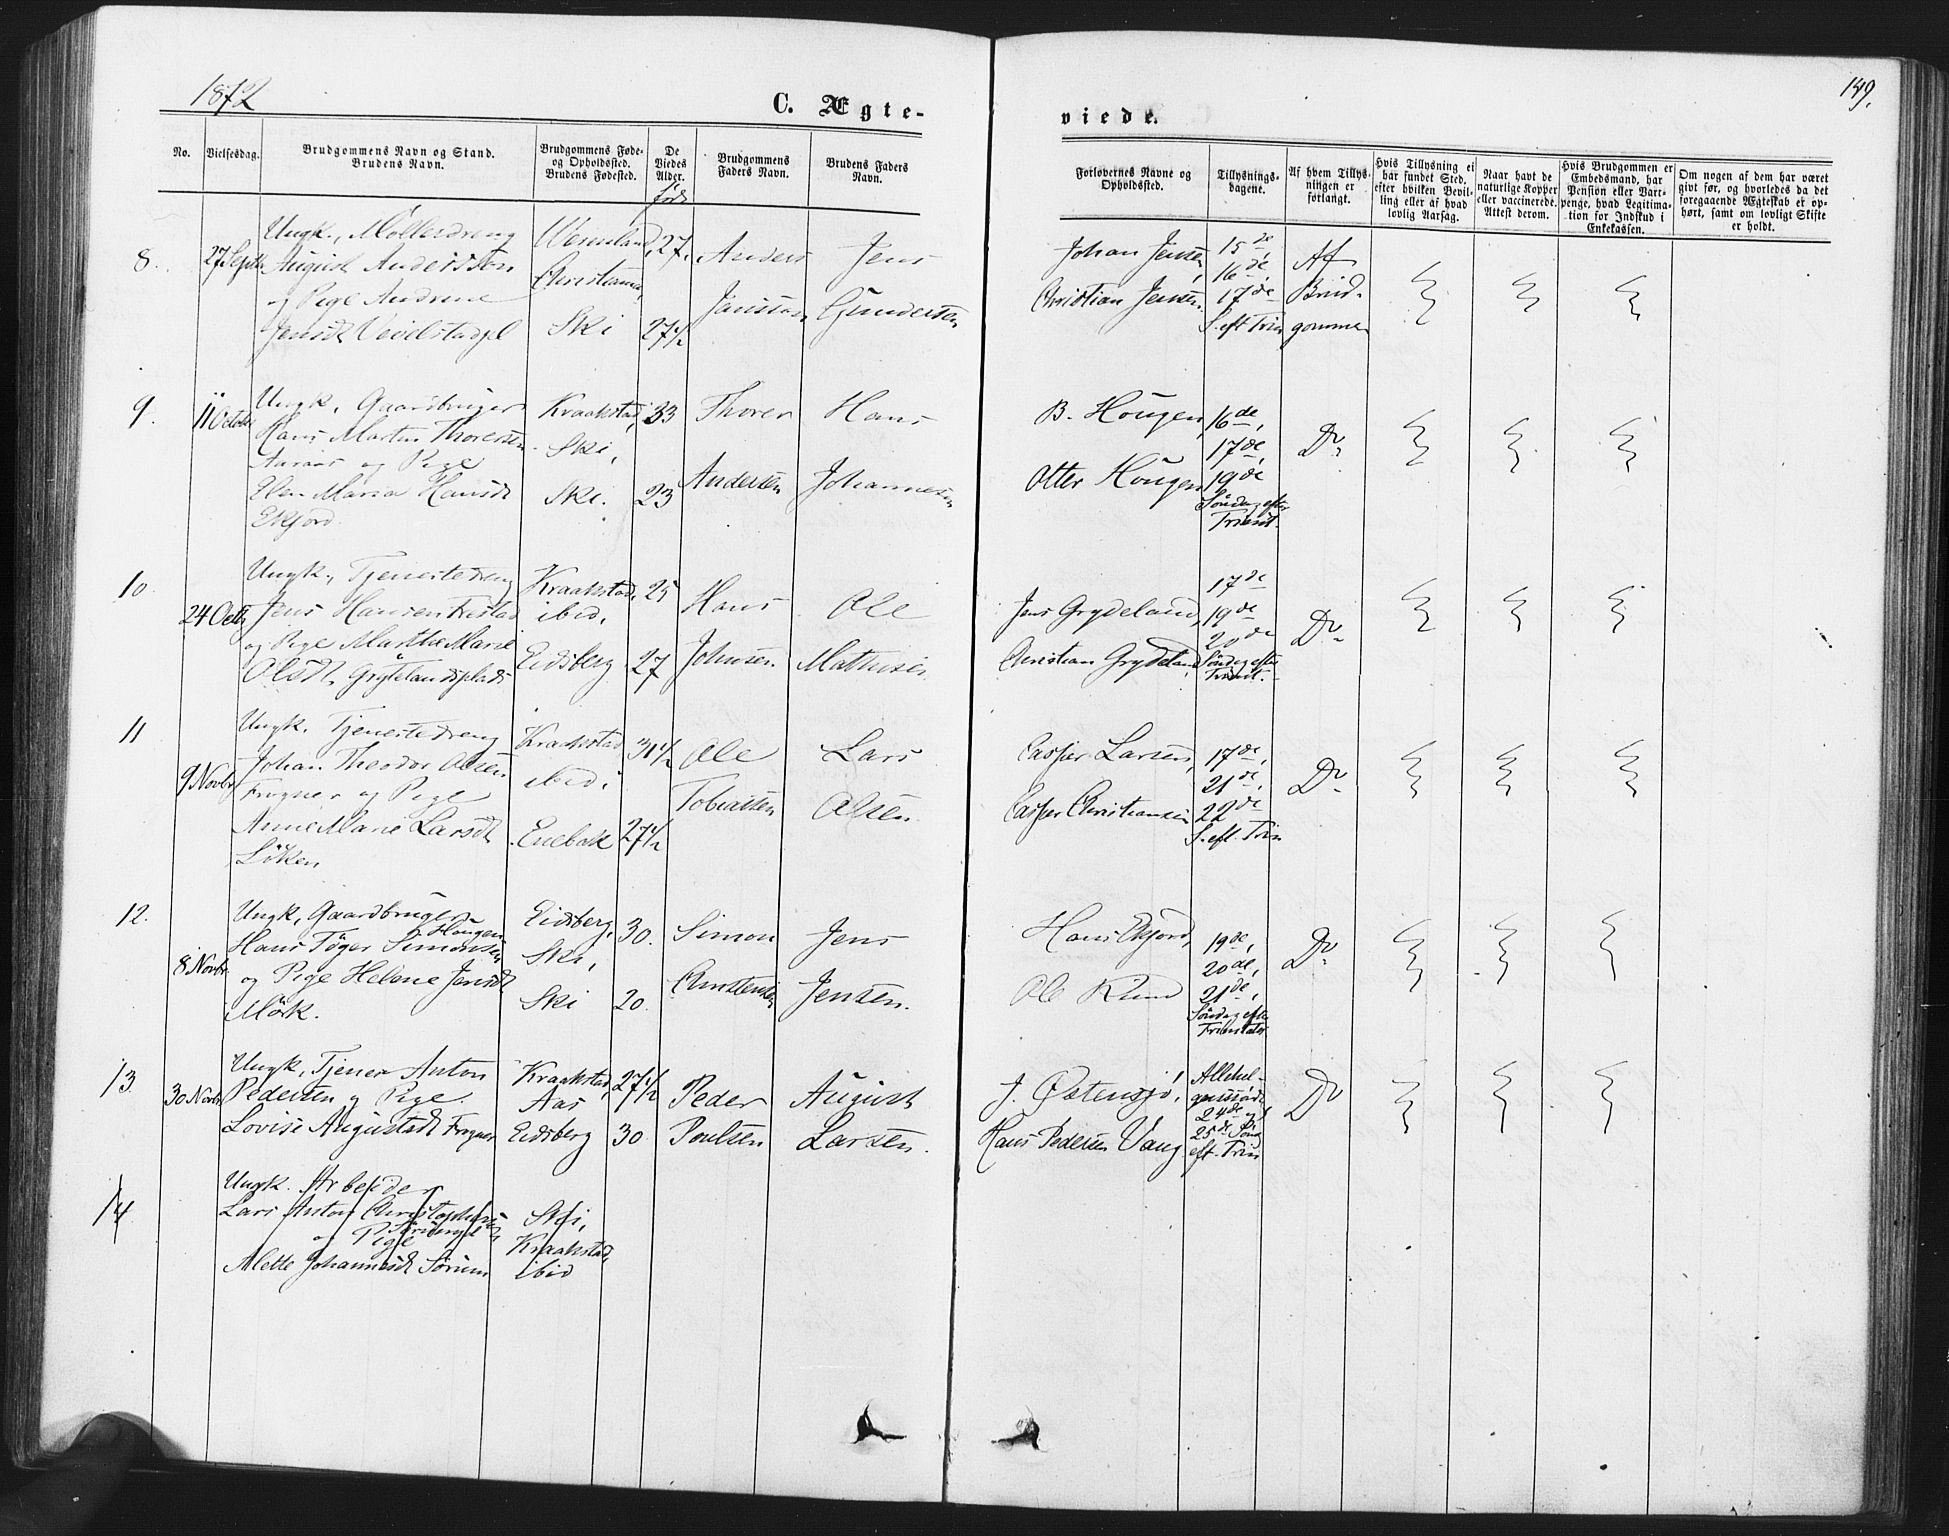 1872
C. Ægte-
viede.
149.
No.
Vielsesdag.
Brudgommens Navn og Stand.
Brudens Navn.
Brudgommens Føde-
og Opholdssted.
Brudens Fødested.
De
Viedes
Alder.
født
Brudgommens
Faders Navn.
Brudens Faders
Navn.
Forlovernes Navne og
Opholdssted.
Tillysnings-
dagene.
Af hvem Tillys-
ningen er
forlangt.
Hvis Tillysning ei
har fundet Sted,
efter hvilken Bevil-
ling eller af hvad
lovlig Aarsag.
Naar havt de
naturlige Kopper
eller vaccinerede.
Attest derom.
Hvis Brudgommen er
Embedsmand, har
Pension eller Vart-
penge, hvad Legitima-
tion for Indskud i
Enkekassen.
Om nogen af dem har været
givt før, og hvorledes da det
foregaaende Ægteskab er op-
hørt, samt om lovligt Skifte
er holdt.
8.
27 Septbr
Ungk., Möllerdreng
August Andersson
og Pige Andrine
Jensdt
Wermland,
Christiania,
Ski
27,
27½
Anders
Jansson
Jens
Gundersen
Johan Jensen,
Christian Jensen.
15de,
16de,
17de
S. eft Trin
Af
Brud-
gommen
9.
11 October
Ungk. Gaardbruger
Hans Martin Thoresen
Aaraas og Pige
Elen Maria Hansdt
Ekjord.
Kraakstad,
Ski,
Ski.
33
23
Thorer
Andersen
Hans
Johannesen
B. Hougen,
Otter Hougen
16de,
17de,
19de
Söndag efter
Trinit.
Do
10
24 Octb
Ungk., Tjenestedreng
Jens Hansen Frestad
og Pige Marthe Marie
Olsdt, Grytelandsplads
Kraakstad,
ibid,
Eidsberg
25
27
Hans
Johnsen
Ole
Mathisen
Jens Grydeland,
Christian Grydeland,
17de
19de
20de
Söndag efter
Trinit.
Do
11
9 Novbr
Ungk. Tjenestedreng
Johan Theodor Olsen
Frogner og Pige
Anne Marie Larsdt
Löken
Kraakstad
ibid,
Enebak
31½
27½
Ole
Tobiassen
Lars
Olsen
Casper Larsen,
Casper Christiansen
17de,
21de,
22de
S. eft. Trin
Do
12.
8 Novbr.
Ungk, Gaardbruger
Hougen
Hans Töger Simonsen
og Pige Helene Jensdt
Mörk.
Eidsberg,
Ski,
Ski
30.
20.
Simon
Jens
Jensen.
Hans Ekjord,
Ole Rund
19de,
20de,
21de,
Söndag efter
Trinitatis
Do
13
30 Novbr.
Ungk, Tjener Anton
Pedersen og Pige
Lovise Augustsdt Frogner
Kraakstad,
Aas
Eidsberg
27½
30
Peder
Poulsen
August
Larsen.
J. Østensjö,
Hans Pedersen Vang
Allehel-
gensönd
24de og
25de Sönd
eft. Trin
Do
14
Ungk. Arbeider
Lars Anton Christophersen
og Pige
Alette Johannesdt Sörum
Ski,
Kraakstad,
ibid